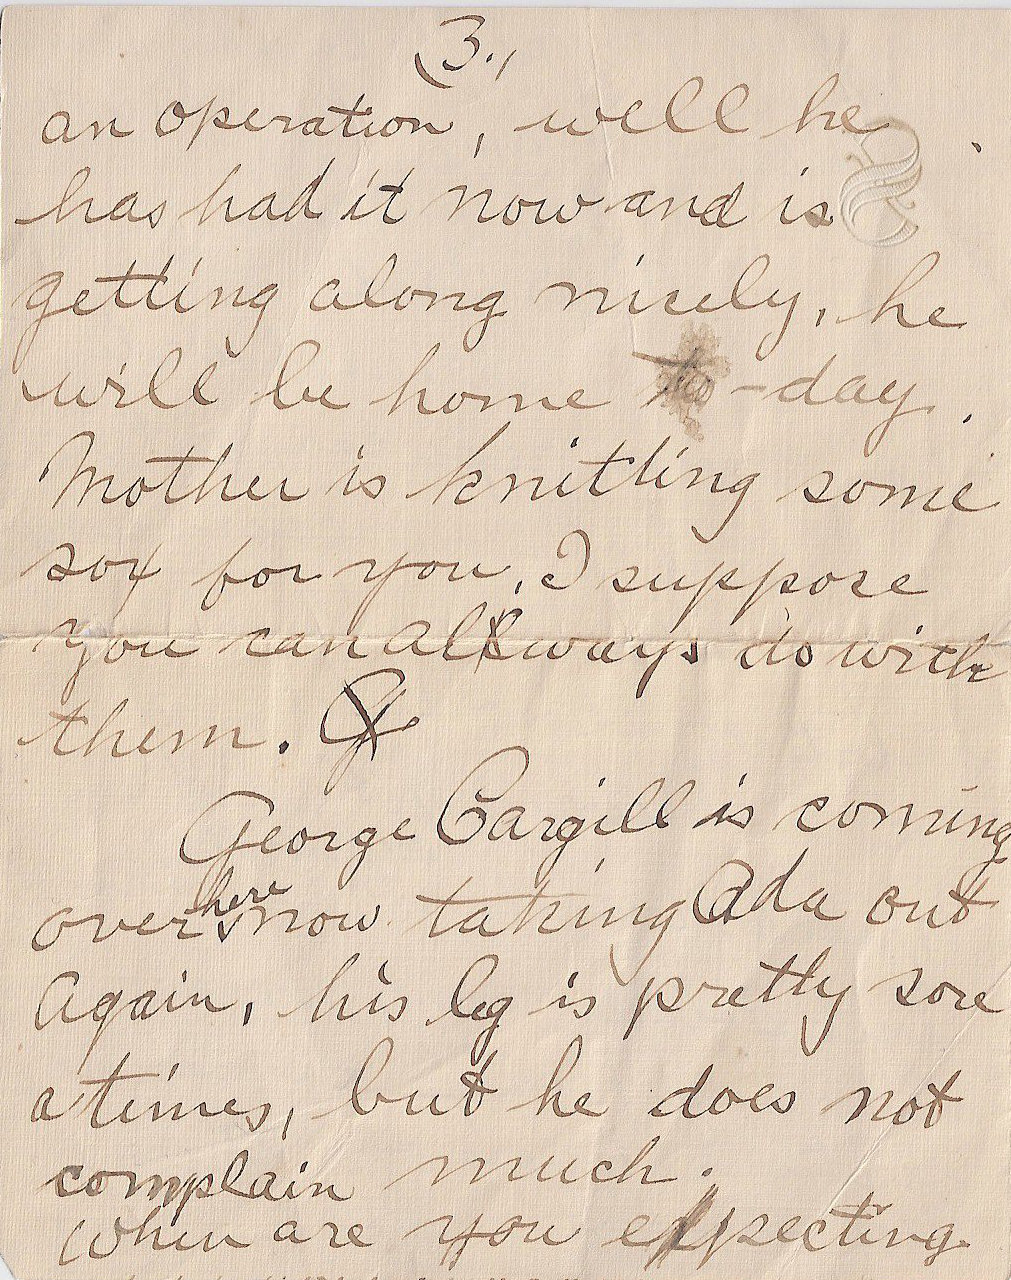 (3.)
an operation, well he
has had it now and is
getting along nicely, he
will be home to-day.
Mother is knitting some
sox for you, I suppose
you can always do with
them.
George Cargill is coming
over here now taking Ada out
Again, his leg is pretty sore
a times, but he does not
complain much.
When are you expecting